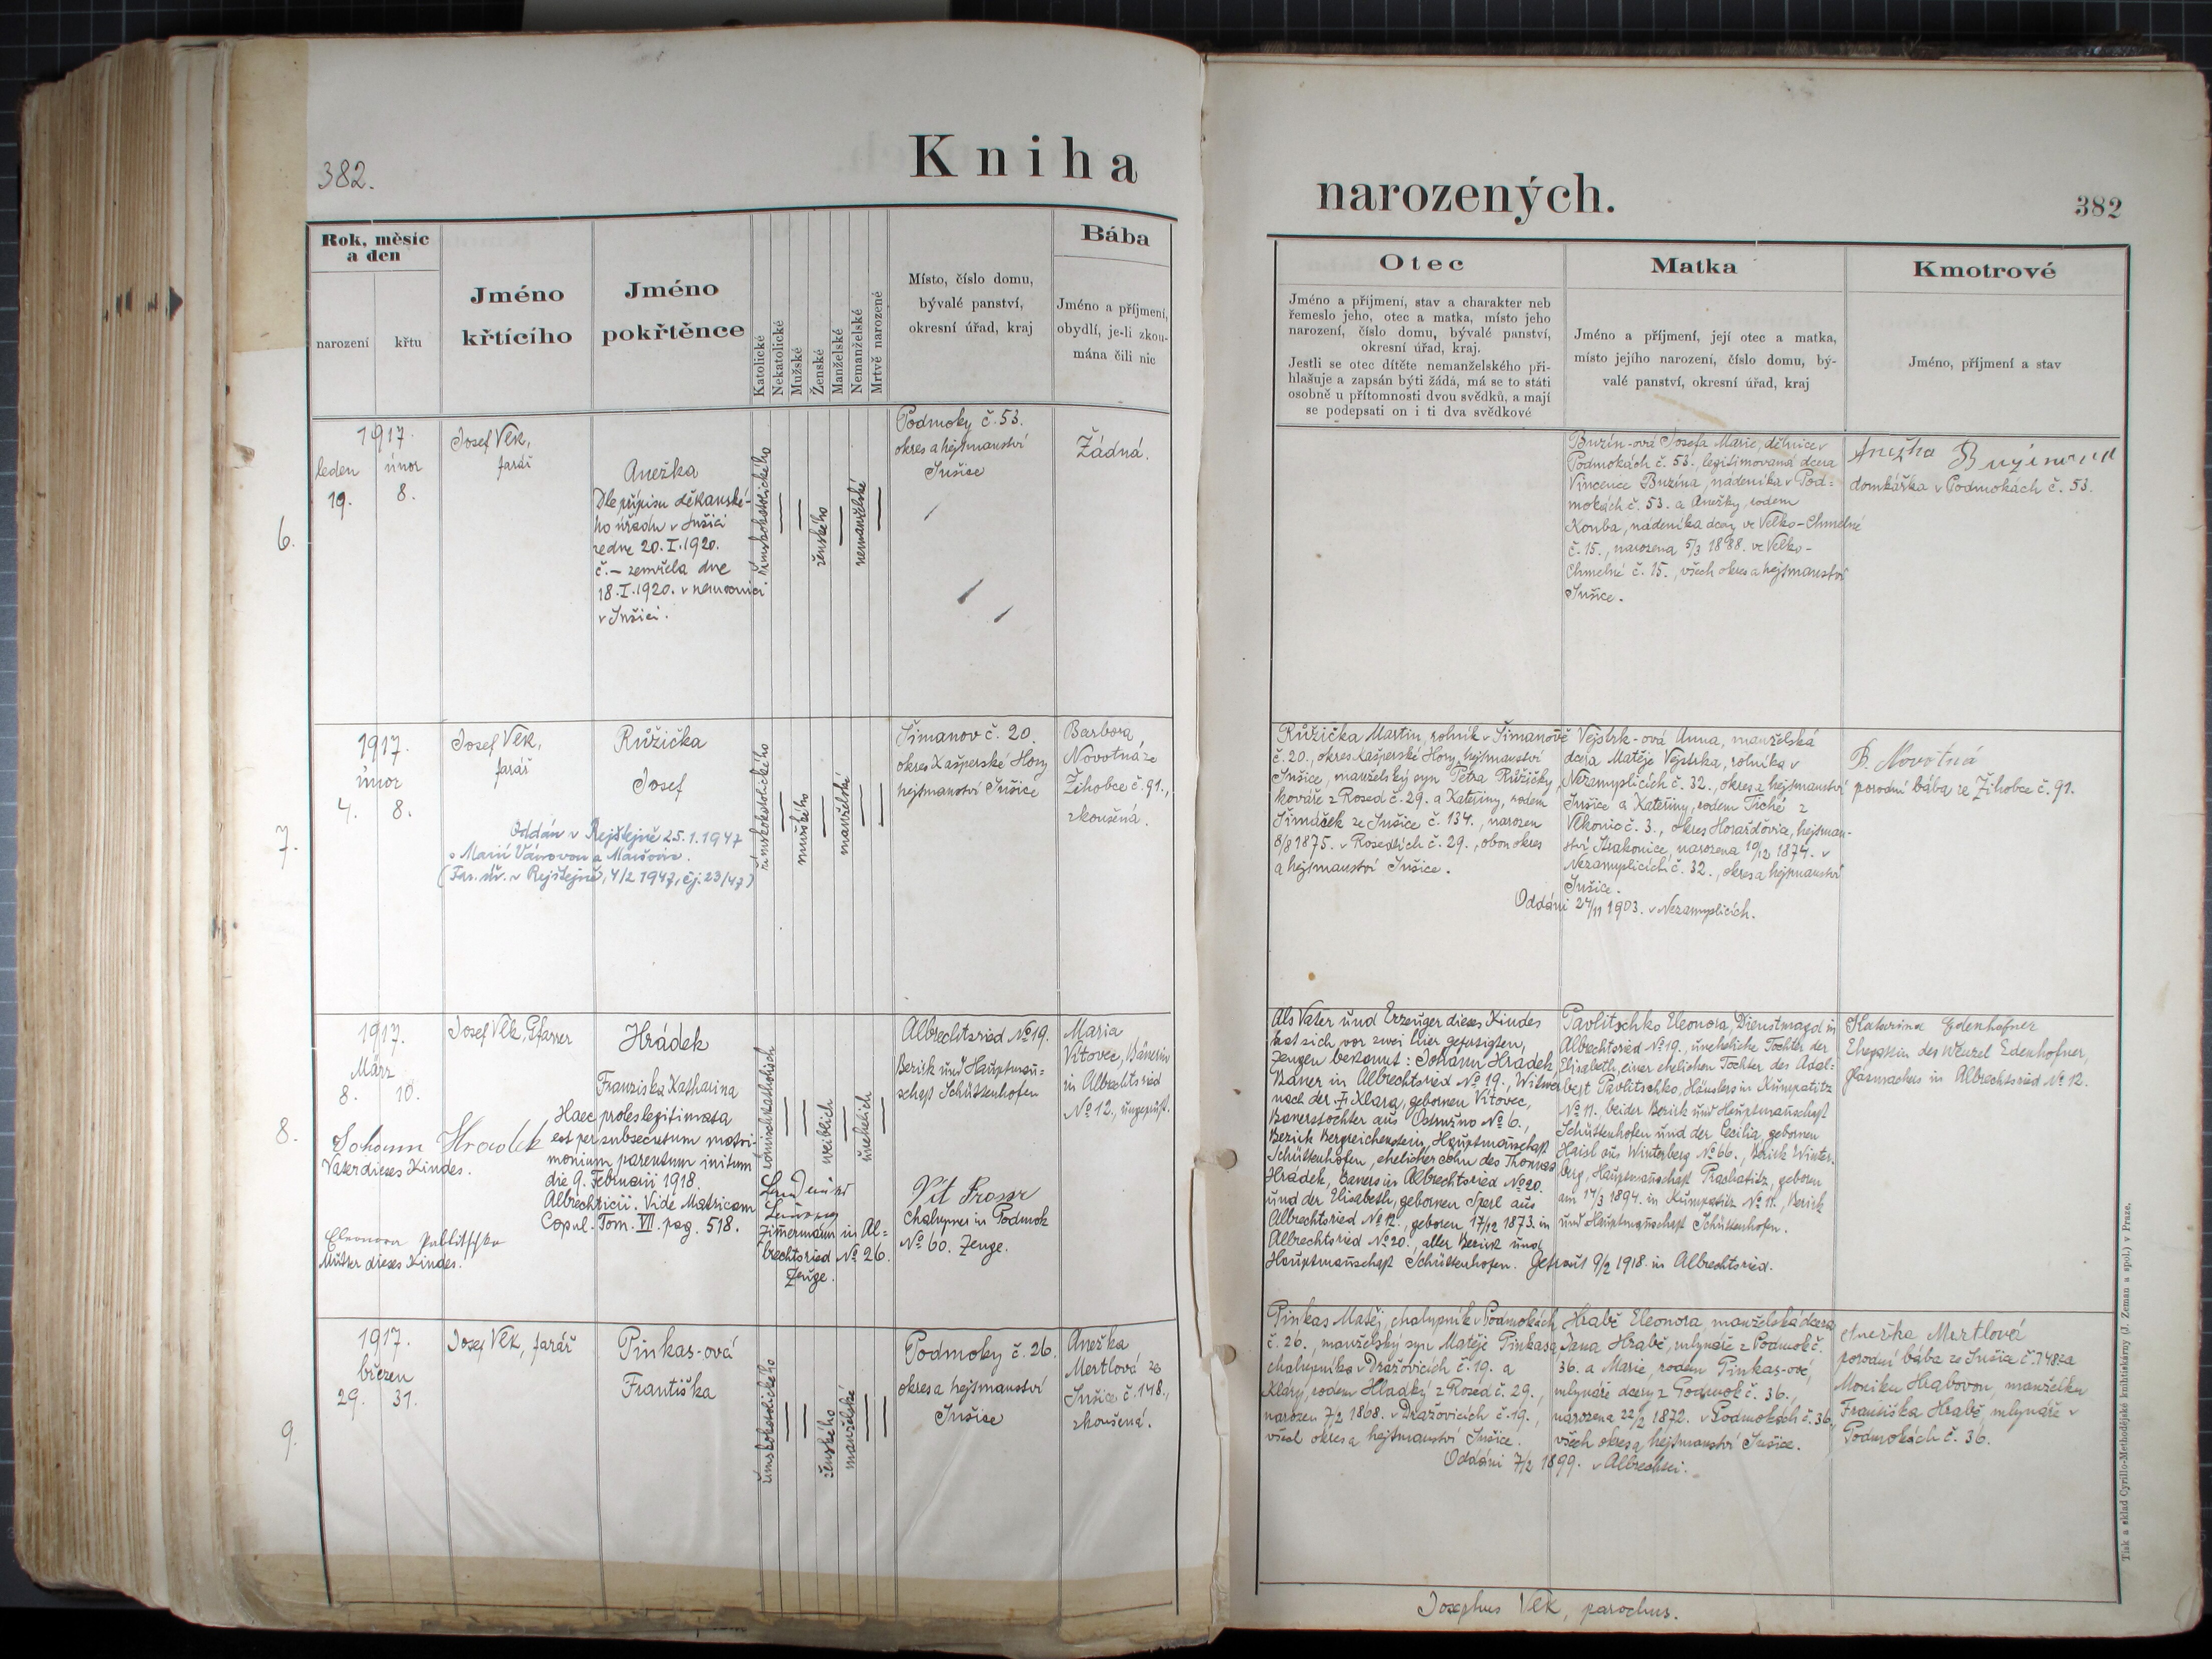 382.
Kniha
narozených.
382
Rok, měsíc
a den
narození
křtu
Jméno
křtícího
Jméno
pokřtěnce
Katolické
Nekatolické
Mužské
Ženské
Manželské
Nemanželské
Mrtvě narozené
Místo, číslo domu,
bývalé panství,
okresní úřad, kraj
Bába
Jméno a příjmení,
obydlí, je-li zkou-
mána čili nic
Otec
Jméno a příjmení, stav a charakter neb
řemeslo jeho, otec a matka, místo jeho
narození, číslo domu, bývalé panství,
okresní úřad, kraj.
Jestli se otec dítěte nemanželského při-
hlašuje a zapsán býti žádá, má se to státi
osobně u přítomnosti dvou svědků, a mají
se podepsati on i ti dva svědkové
Matka
Jméno a příjmení, její otec a matka,
místo jejího narození, číslo domu, bý-
valé panství, okresní úřad, kraj
Kmotrové
Jméno, příjmení a stav
6.
1917.
leden
únor
19.
8.
Josef Vlk,
farář
Anežka
Dle přípisu děkanské-
ho úřadu v Sušici
ze dne 20. I. 1920.
č. — zemřela dne
18. I. 1920. v nemocnici
v Sušici.
římskokatolického
ženského
nemanželské
Podmoky č. 53.
okres a hejtmanství
Sušice
Žádná.
Buzín-ová Josefa Marie, dělnice v
Podmokách č. 53., legitimovaná dcera
Vincence Buzína, nádeníka v Pod-
mokách č. 53. a Anežky, rodem
Kouba, nádeníka dcery ve Velko-Chmelné
č. 15., narozena 5/3 1888. ve Velko-
Chmelné č. 15., všech okres a hejtmanství
Sušice.
Anežka
domkářka v Podmokách č. 53.
7.
1917.
únor
4.
8.
Josef Vlk,
farář
Růžička
Josef
Oddán v Rejštejně 25. 1. 1947
s Marií Vávrovou z
(Far. úř. v Rejštejně, 4/2 1947, čj. 23/47)
římskokatolického
mužského
manželské
Šimanov č. 20.
okres Kašperské Hory
hejtmanství Sušice
Barbora
Novotná ze
Žihobce č. 91.,
zkoušená.
Růžička Martin, rolník v Šimanově
č. 20., okres Kašperské Hory, hejtmanství
Sušice, manželský syn Petra Růžičky,
kováře z Rosed č. 29. a Kateřiny, rodem
Šimáček ze Sušice č. 134., narozen
8/8 1875. v Rosedlích č. 29., obou okres
a hejtmanství Sušice.
Vejstrk-ová Anna, manželská
dcera Matěje Vejstrka, rolníka v
Nezamyslicích č. 32., okres a hejtmanství
Sušice a Kateřiny, rodem Tiché z
Vlkonic č. 3., okres Horažďovice, hejtman-
ství Strakonice, narozena 10/12 1874. v
Nezamyslicích č. 32., okres a hejtmanství
Sušice.
Oddáni 24/11 1903. v Nezamyslicích.
B. Novotná
porodní bába ze Žihobce č. 91.
8.
1917.
März
8.
10.
Josef Vlk, Pfarrer
Hrádek
Franziska Katharina
Haec proles legitimata
est per subsecutum matri-
monium parentum initum
die 9. Februarii 1918.
Albrechticii. Vide Matricam
Copul. Tom. VII. pag. 518.
Johann Hradek
Vater dieses Kindes.
Eleonora
Mutter dieses Kindes.
römischkatholisch
weiblich
unehelich
Zimermann in Al-
brechtsried No 26.
Zeuge.
Albrechtsried No 19.
Bezirk und Hauptman-
schaft Schüttenhofen
Vít
Chalupner in Podmok
No 60. Zeuge.
Maria
Vítovec, Bäuerin
in Albrechtsried
No 12., ungeprüft.
Als Vater und Erzeuger dieses Kindes
hat sich vor zwei hier gefertigten,
Zeugen bekannt: Johann Hradek,
Bauer in Albrechtsried No 19., Witwer
nach der † Klara, gebornen Vítovec,
Bauerstochter aus No 6.,
Bezirk Bergreichenstein, Hauptmanschaft
Schüttenhofen, ehelicher Sohn des Thomas
Hrádek, Bauers in Albrechtsried No 20.
und der Elisabeth, gebornen Sperl aus
Albrechtsried No 12., geboren 17/12 1873. in
Albrechtsried No 20., aller Bezirk und
Hauptmanschaft Schüttenhofen. Getraut 9/2 1918. in Albrechtsried.
Pavlitschko Eleonora, Dienstmagd in
Albrechtsried No 19., uneheliche Tochter der
Elisabeth, einer ehelichen Tochter des Adal-
bert Pavlitschko, Häuslers in Kumpatitz
No 11., beider Bezirk und Hauptmanschaft
Schüttenhofen und der Cecilia, gebornen
Haisl aus Winterberg No 66., Bezirk Winter-
berg, Hauptmanschaft Prachatitz, geboren
am 17/3 1894. in Kumpatitz No 11., Bezirk
und Hauptmanschaft Schüttenhofen.
Katharina Edenhofner
Ehegattin des Wenzel Edenhofner,
Glasmachers in Albrechtsried No 12.
9.
1917.
březen
29.
31.
Josef Vlk, farář
Pinkas-ová
Františka
římskokatolického
ženského
manželské
Podmoky č. 26.
okres a hejtmanství
Sušice
Anežka
Mertlová ze
Sušice č. 148.,
zkoušená.
Pinkas Matěj, chalupník v Podmokách
č. 26., manželský syn Matěje Pinkasa,
chalupníka v Dražovicích č. 19. a
Kláry, rodem Hladký z Rosed č. 29.,
narozen 7/2 1868. v Dražovicích č. 19.,
všech okres a hejtmanství Sušice.
Hrabě Eleonora, manželská dcera
Jana Hrabě, mlynáře z Podmok č.
36. a Marie, rodem Pinkas-ové,
mlynáře dcery z Podmok č. 36.,
narozena 22/2 1872. v Podmokách č. 36.,
všech okres a hejtmanství Sušice.
Oddáni 7/2 1899. v Albrechtici.
Anežka Mertlová
porodní bába ze Sušice č. 148 za
Moniku Hrabovou, manželku
Františka Hrabě, mlynáře v
Podmokách č. 36.
Josephus Vlk, parochus.
Tisk a sklad Cyrillo-Methodějské knihtiskárny (J. Zeman a spol.) v Praze.